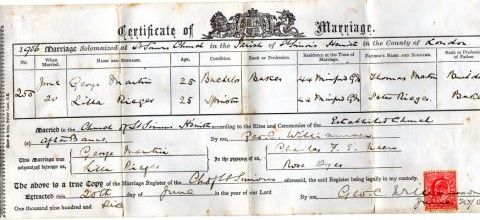 Certificate of Marriage.
1906 Marriage Solemnized at St Simons Church in the Parish of St Simons in the County of London
No. When Married. Name and Surname. Age. Condition. Rank or Profession. Residence at the Time of Marriage. Father's Name and Surname. Rank or
255 June George Martin 25 Bachelor Baker 44 Minford Gdns Thomas Martin
20 Lilla Rieger 25 Spinster 44 Minford Gdns Peter Rieger Baker
Married in the Church of St Simons according to the Rites and Ceremonies of the Established Church
(c) After Banns by me, Williamson
This Marriage was solemnized between us, George Martin Lilla Rieger in the presence of us, Charles F. E. Rose
The above is a true Copy of the Marriage Register of the Ch of St Simons aforesaid, the said Register being legally in my custody.
Extracted this 20th day of June in the year of our Lord By Geo. C. Williamson
One thousand nine hundred and Six June 20